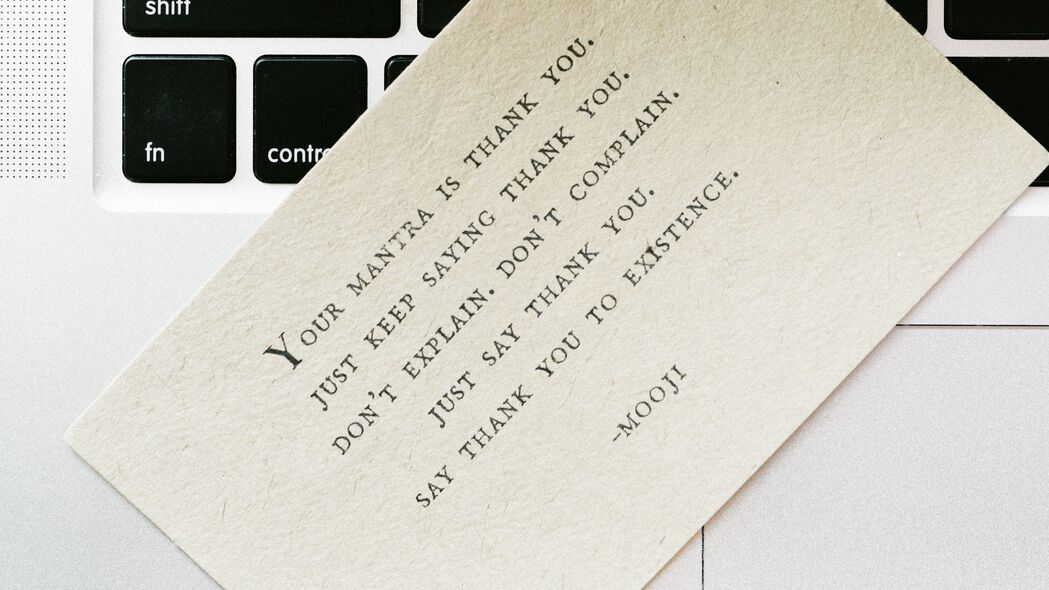 shift
fn
YOUR MANTRA IS THANK YOU.
JUST KEEP SAYING THANK YOU.
DON'T EXPLAIN. DON'T COMPLAIN.
JUST SAY THANK YOU.
SAY THANK YOU TO EXISTENCE.
-MOOJI